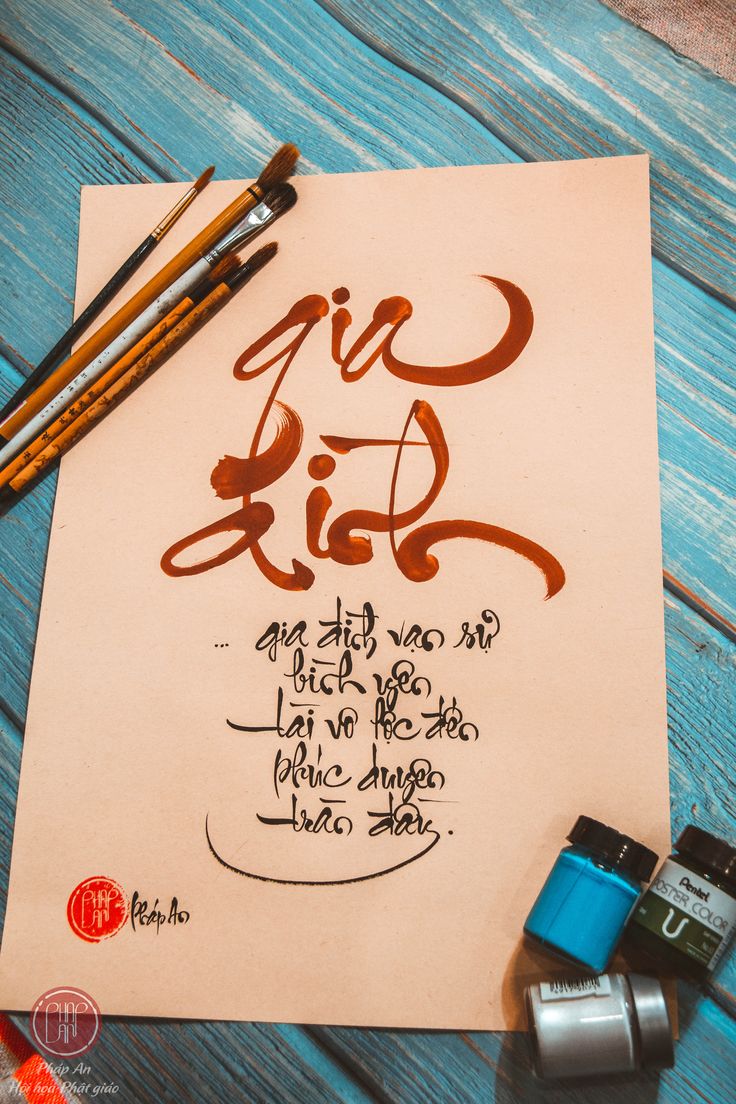 gia
đình
... gia đình vạn sự
bình yên
tài vô lộc đến
phúc duyên
tràn đầy.
PHÁP
AN
Pháp An
Pentel
POSTER COLOR
U
PHÁP
AN
Pháp An
Hội hoạ Phật giáo